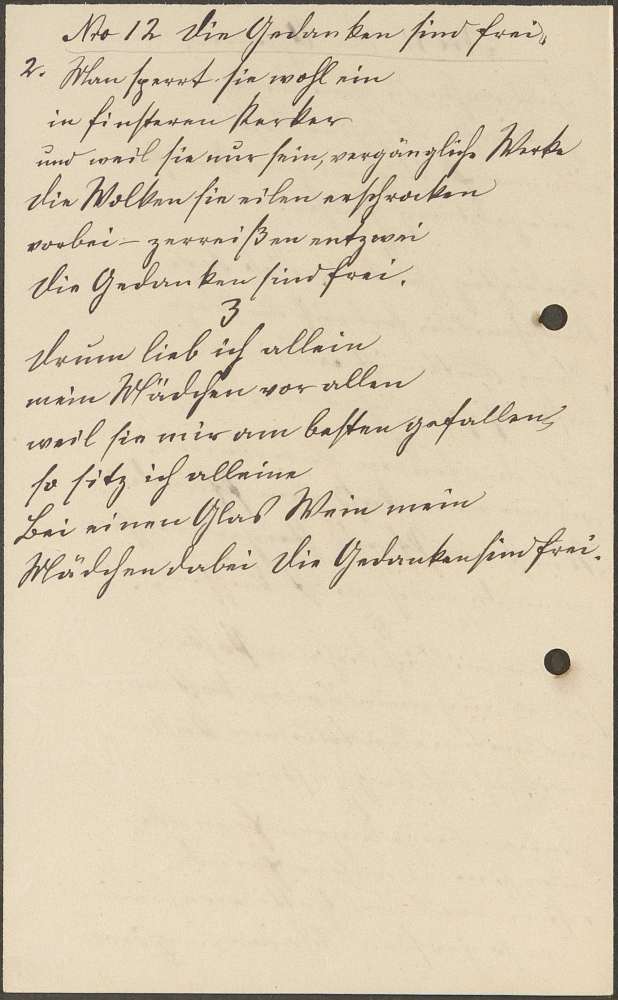 Nro 12 Die Gedanken sind frei.
2. Man sperrt sie wohl ein
in finsteren Kerker
und weil sie nur sein, vergängliche Werke
Die Wolken sie eilen erschrocken
vorbei – zerreißen entzwei
Die Gedanken sind frei.
3
Drum lieb ich allein
mein Mädchen vor allen
weil sie mir am besten gefallen,
so sitz ich alleine
Bei einen Glas Wein mein
Mädchen dabei Die Gedanken sind frei.